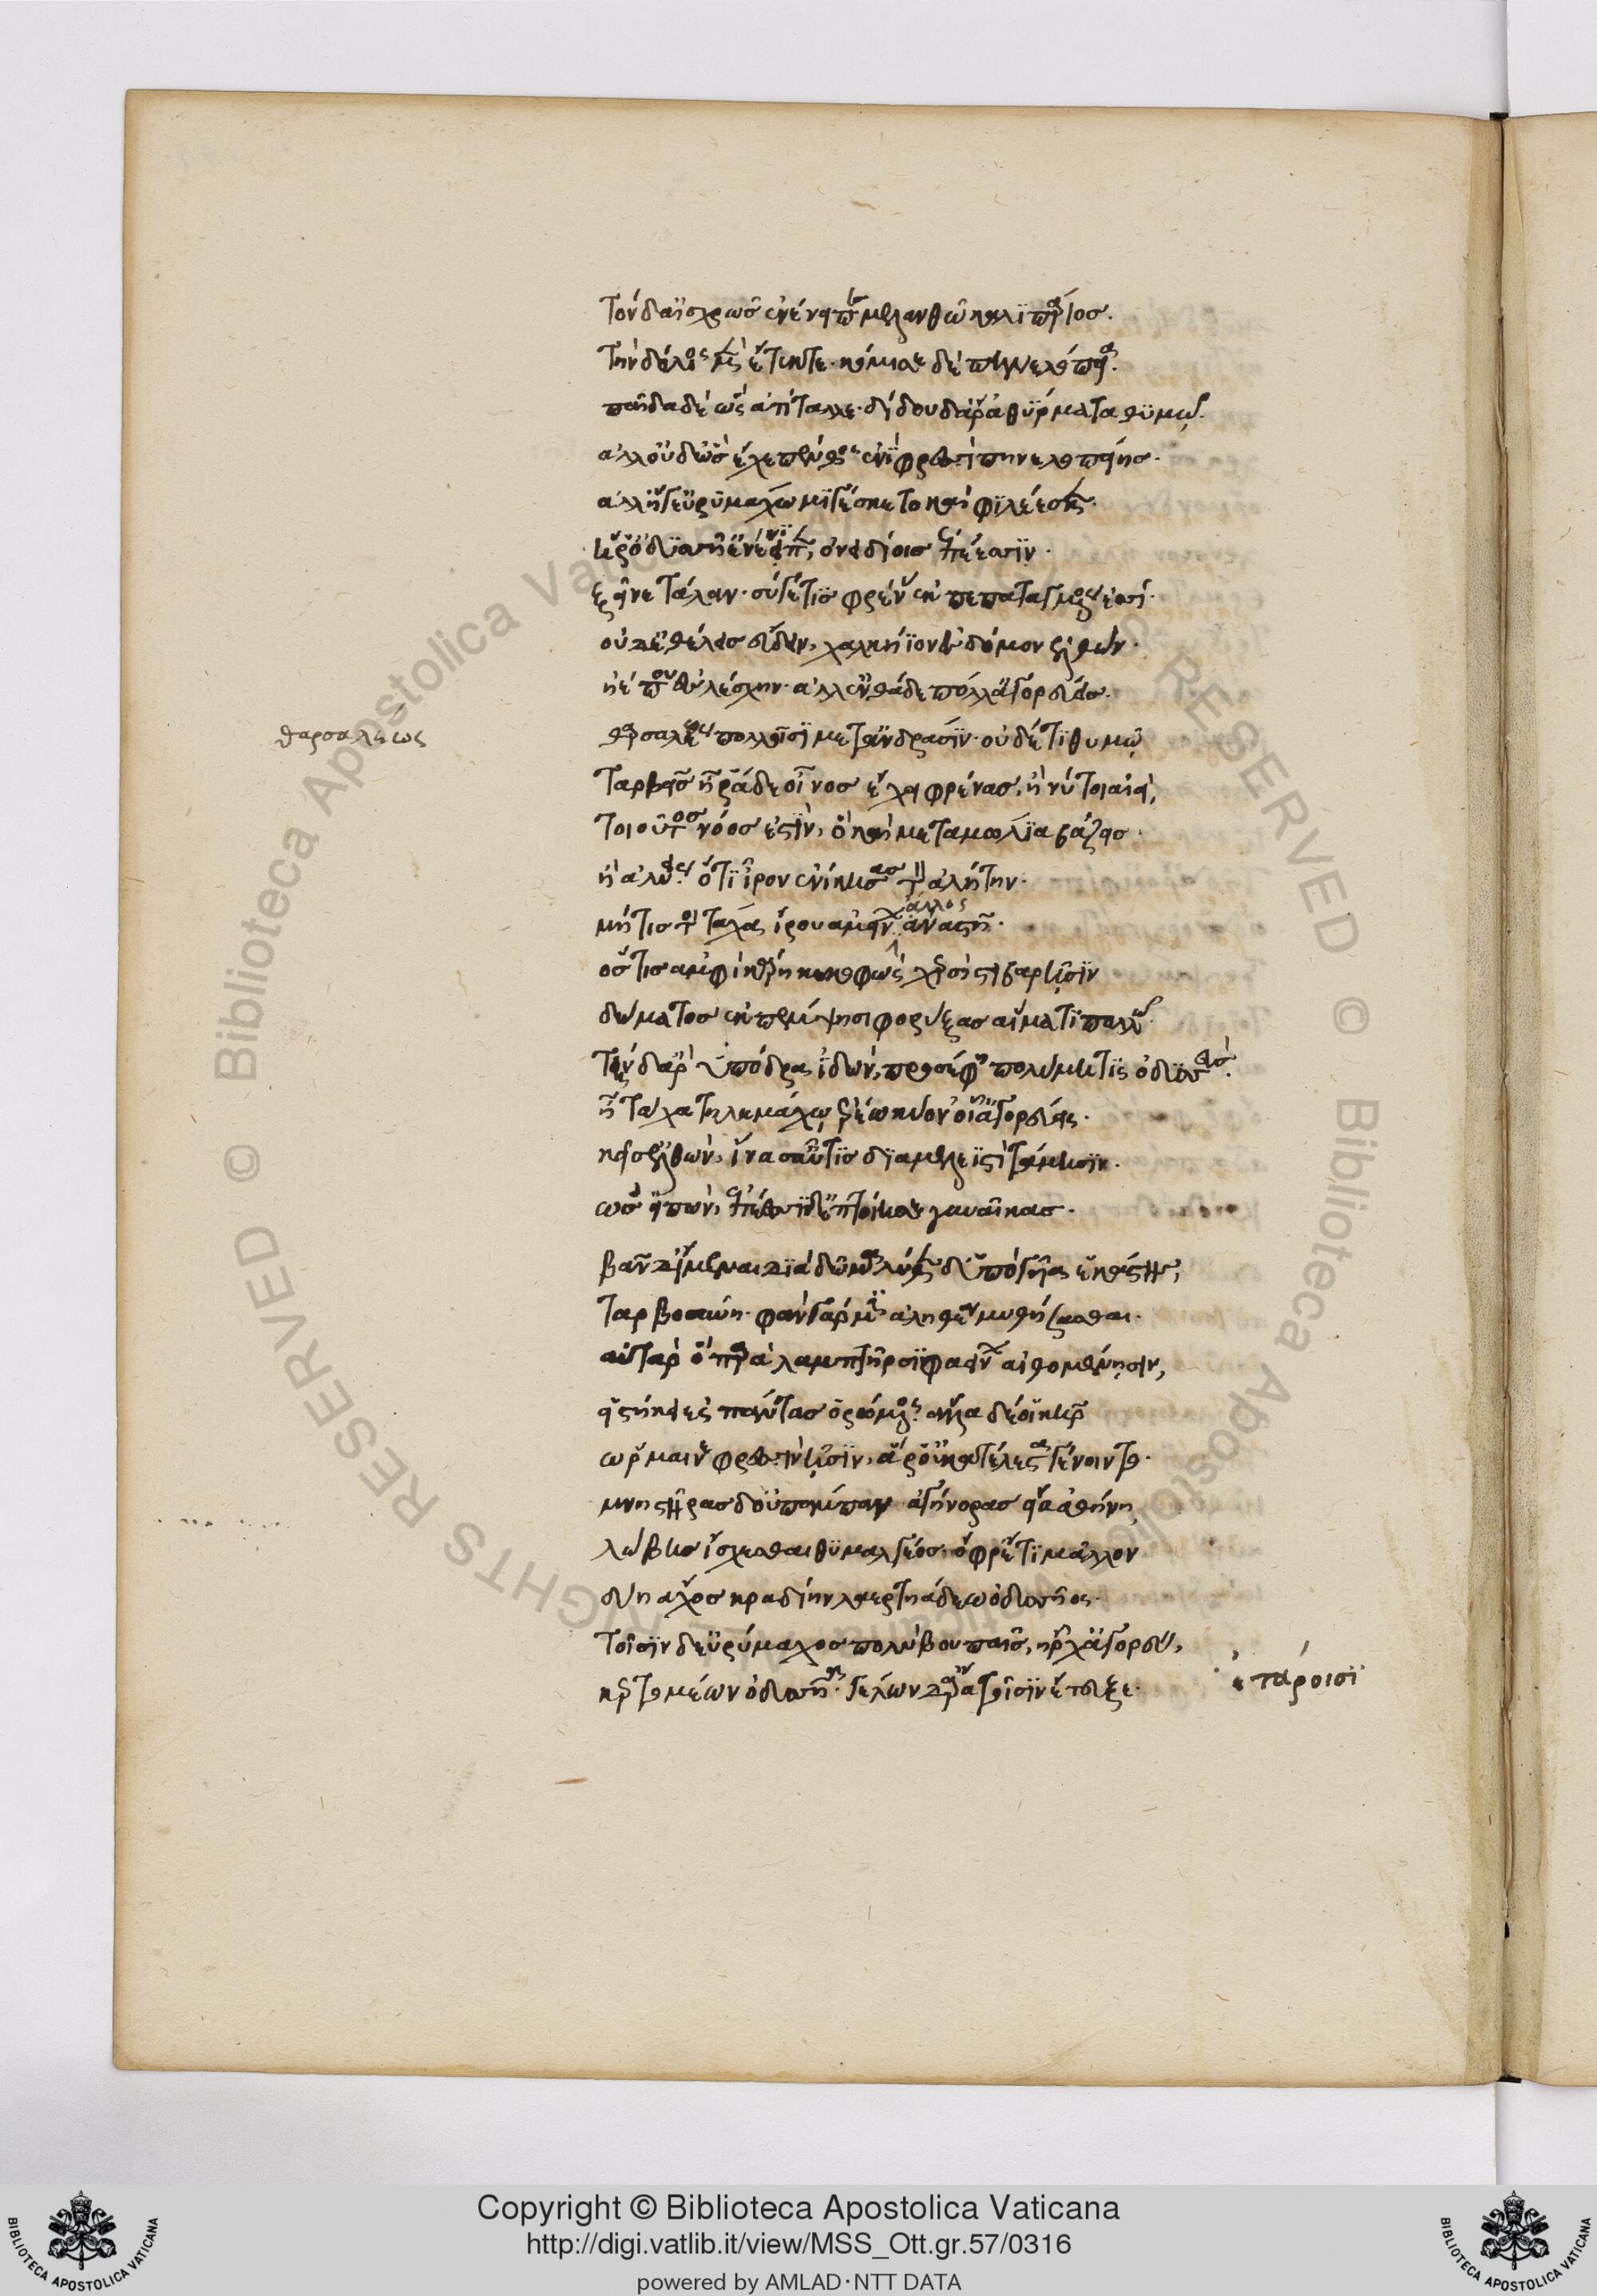 τὸν δ' αἰσχρῶς ἐνένιπε μελανθὼ καλλιπάρηος.
τὴν δολίος μὲν ἔτικτε. κόμισσε δὲ πηνελόπεια.
παῖδα δὲ ὣς ἀτίταλλε. δίδου δ' ἄρ' ἀθύρματα θυμῷ.
ἀλλ' οὐδ' ὣς ἔχε πένθος ἐνὶ φρεσὶ πηνελοπείης.
ἀλλ' ἥγ' εὐρυμάχῳ μισγέσκετο καὶ φιλέεσκε.
ἥ ῥ' ὀδυσῆ' ἐνένιπεν, ὀνειδίοις ἐπέεσσιν.
ξεῖνε τάλαν. σύγέ τις φρένας ἐκπεπαταγμένος ἐσσί.
οὐδ' ἐθέλεις εὕδειν, χαλκήϊον ἐς δόμον ἐλθών.
ἠέ που ἐς λέσχην. ἀλλ' ἐνθάδε πόλλ' ἀγορεύεις.
θαρσαλέως
θαρσαλέως πολλοῖσι μετ' ἀνδράσιν. οὐδέ τι θυμῷ
ταρβεῖς ἦ ῥά σε οἶνος ἔχει φρένας. ἤ νύ τοι αἰεὶ,
τοιοῦτος νόος ἐστὶν, ὃ καὶ μεταμώλια βάζεις.
ἢ ἀλύεις ὅτι ἶρον ἐνίκησας τὸν ἀλήτην.
μή τίς τοι τάχα ἴρου ἀμείνων ἄλλος ἀναστῇ.
ὅστις σ' ἀμφὶ κάρη κεκοφὼς χερσὶ στιβαρῇσιν
δώματος ἐκπέμψῃσι φορύξας αἵματι πολλῷ.
τὴν δ' ἄρ' ὑπόδρα ἰδὼν, προσέφη πολύμητις ὀδυσσεύς.
ἦ τάχα τηλεμάχῳ ἐρέω κύον οἷ' ἀγορεύεις.
κεῖσ' ἐλθὼν, ἵνα σ' αὖθι διαμελεϊστὶ τάμῃσιν.
ὣς εἰπὼν, ἐπέεσσι διεπτοίησε γυναῖκας.
βὰν δ' ἴμεναι διὰ δῶμα λύθεν δ' ὑπὸ γυῖα ἑκάστης,
ταρβοσύνῃ. φὰν γάρ μιν ἀληθέα μυθήσασθαι.
αὐτὰρ ὃ πὰρ λαμπτῆρσι φαείνων αἰθομένοισιν,
εἱστήκει ἐς πάντας ὁρώμενος. ἄλλα δέ οἱ κῆρ
ὥρμαινε φρεσὶν ᾗσιν, ἅ ῥ' οὐκ ἀτέλεστα γένοντο.
μνηστῆρας δ' οὐ πάμπαν ἀγήνορας εἴα ἀθήνη
λώβης ἴσχεσθαι θυμαλγέος. ὄφρ' ἔτι μᾶλλον
δύη ἄχος κραδίην λαερτιάδεω ὀδυσῆος.
τοῖσιν δ' εὐρύμαχος πολύβου παῖς, ἦρχ' ἀγορεύειν,
κερτομέων ὀδυσῆα. γέλων δ' ἄρα τοῖσιν ἔτευξε.
ἑτάροισι
Copyright © Biblioteca Apostolica Vaticana
http://digi.vatlib.it/view/MSS_Ott.gr.57/0316
powered by AMLAD·NTT DATA